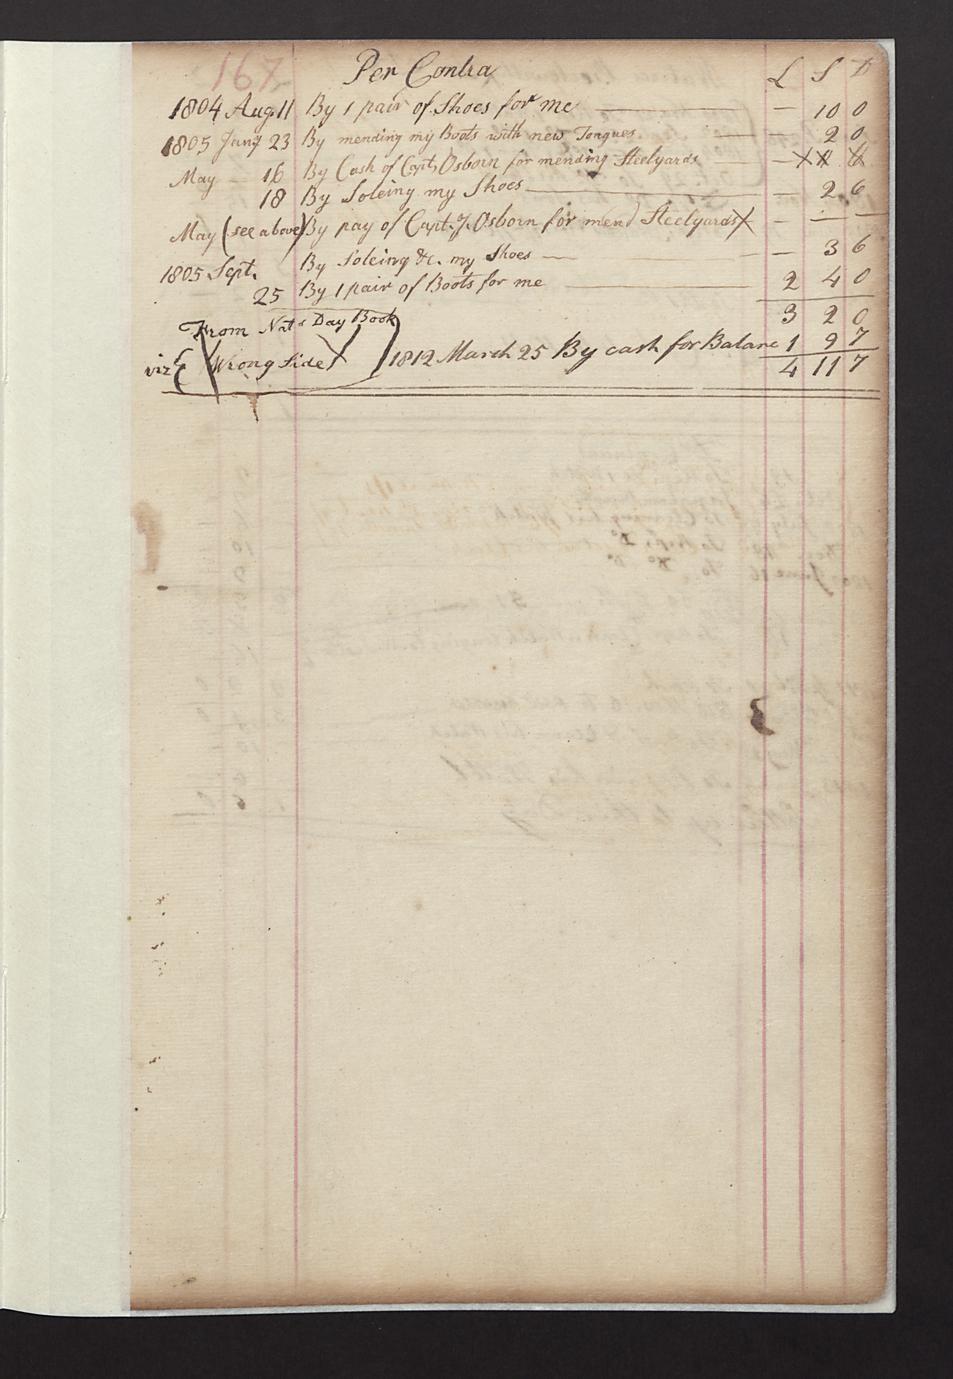 167 Per Contra L S D
1804 Aug. 11 By 1 pair of Shoes for me — 10 0
1805 Jany 23 By mending my Boots with new Tongues — 2 0
May — 16 By Cash of Capt. Osborn for mending Steelyards —
18 By Soleing my Shoes — 2 6
May (see above) By pay of Capt. J. Osborn for mend Steelyards X — — —
1805 Sept. By Soleing &c. my Shoes — 3 6
25 By 1 pair of Boots for me 2 4 0
3 2 0
From Nat's Day Book
viz { (Wrong Side) ) 1812 March 25 By cash for Balanc 1 9 7
4 11 7